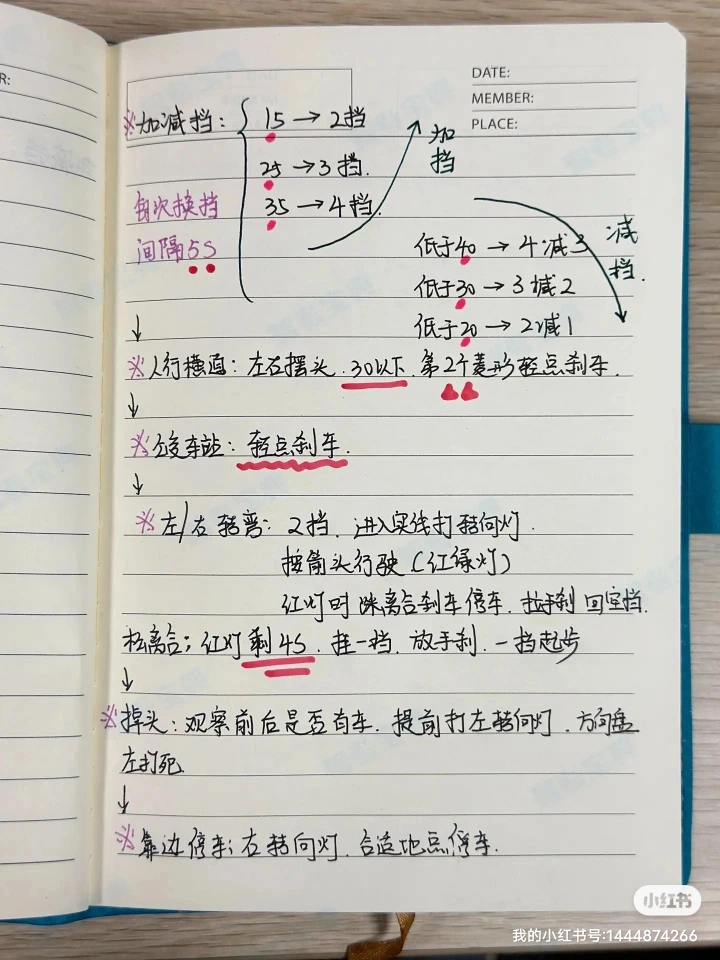 R:
DATE:
MEMBER:
PLACE:
※加减挡：
15 → 2挡
25 → 3挡.
35 → 4挡.
加挡
每次换挡
间隔5S
减挡.
低于40 → 4减3
低于30 → 3减2
低于20 → 2减1
↓
※人行横道：左右摆头.30以下.第2个菱形轻点刹车.
↓
※公交车站：轻点刹车.
↓
※左/右转弯：2挡.进入实线打转向灯.
按箭头行驶（红绿灯）
红灯时踩离合刹车停车.拉手刹回空挡.
松离合；红灯剩4S.挂一挡.放手刹.一挡起步
↓
※掉头：观察前后是否有车.提前打左转向灯.方向盘
左打死.
↓
※靠边停车；右转向灯.合适地点停车.
小红书
我的小红书号:1444874266